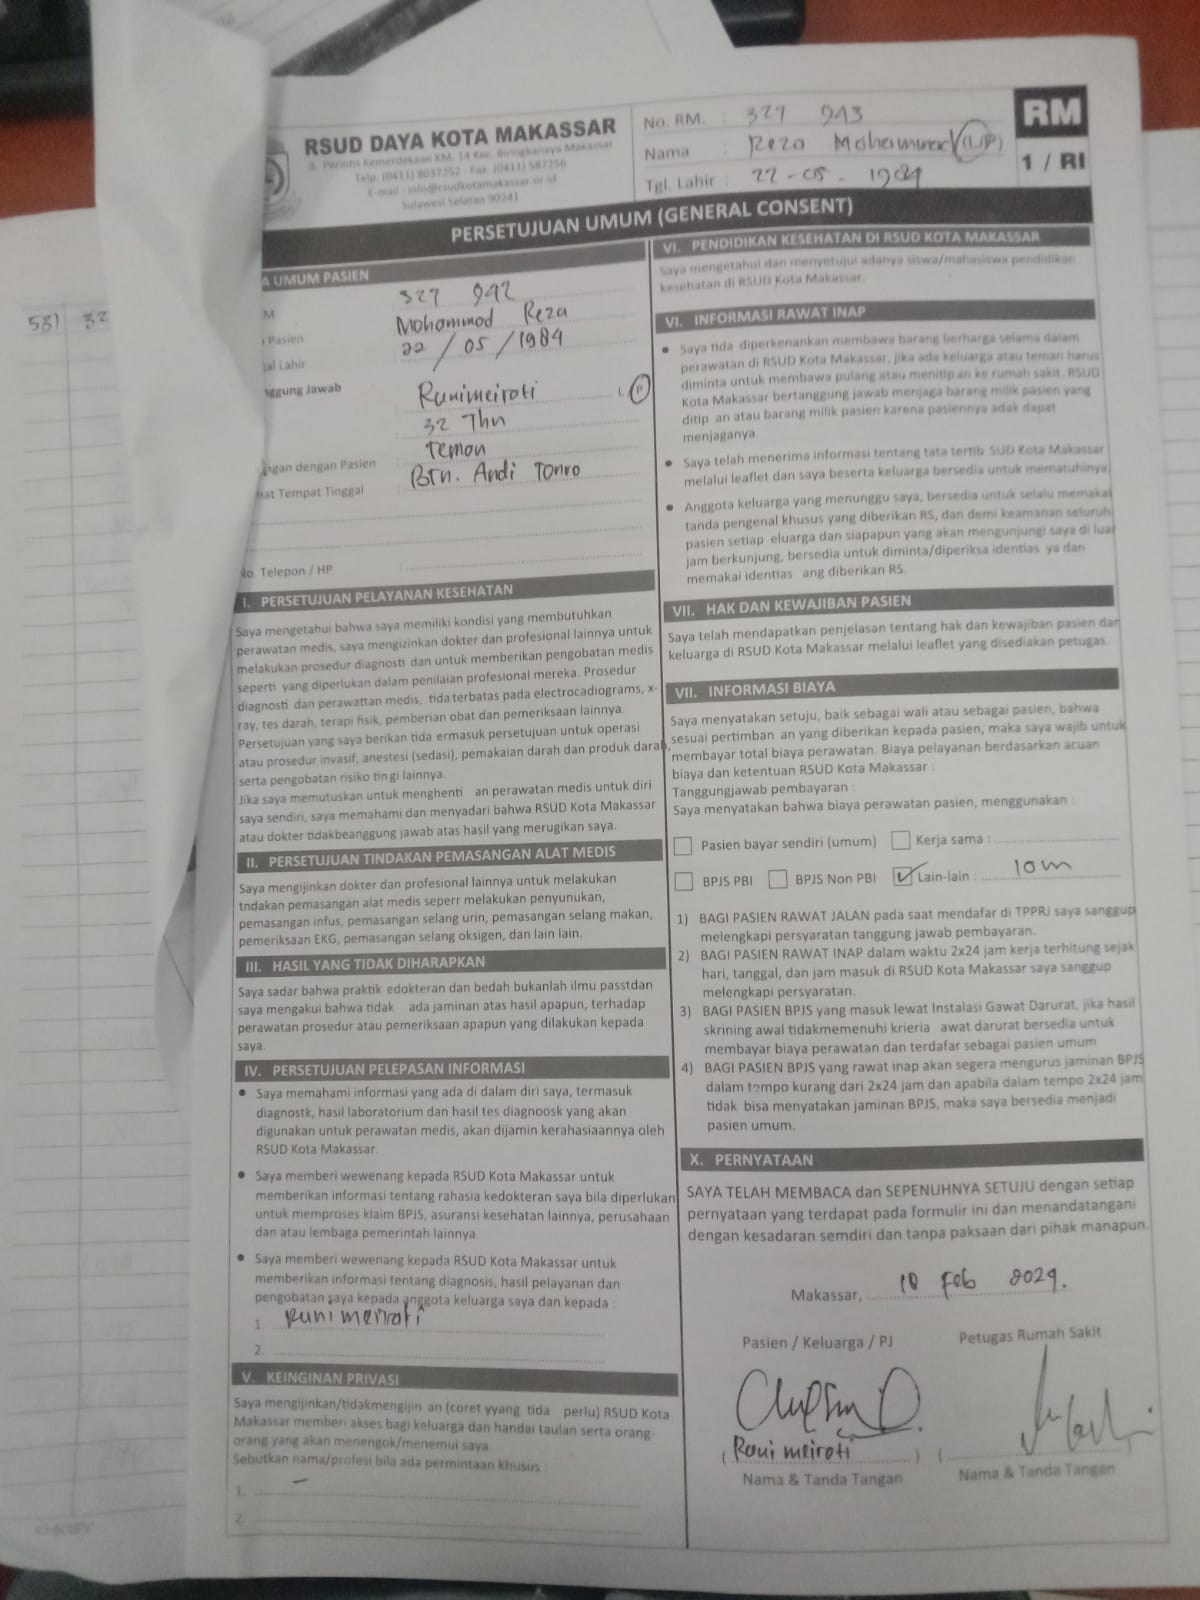 RSUD DAYA KOTA MAKASSAR
JL. Perintis Kemerdekaan KM. 14 Kec. Biringkanaya Makassar
Telp. (0411) 8037252 - Fax. (0411) 587256
E-mail : info@rsudkotamakassar.or.id
Sulawesi Selatan 90241
No. RM. : 327 943
Nama : Reza Mohammad (L/P)
Tgl. Lahir : 22-05-1984
RM
1 / RI
PERSETUJUAN UMUM (GENERAL CONSENT)
A UMUM PASIEN
M 327 942
Pasien Mohammad Reza
al Lahir 22/05/1984
nggung Jawab
: Runimeirati L P
: 32 Thn
ngan dengan Pasien Teman
at Tempat Tinggal : Btn. Andi Tonro
No. Telepon / HP :
I. PERSETUJUAN PELAYANAN KESEHATAN
Saya mengetahui bahwa saya memiliki kondisi yang membutuhkan
perawatan medis, saya mengizinkan dokter dan profesional lainnya untuk
melakukan prosedur diagnosti dan untuk memberikan pengobatan medis
seperti yang diperlukan dalam penilaian profesional mereka. Prosedur
diagnosti dan perawattan medis, tida terbatas pada electrocadiograms, x-
ray, tes darah, terapi fisik, pemberian obat dan pemeriksaan lainnya.
Persetujuan yang saya berikan tida ermasuk persetujuan untuk operasi
atau prosedur invasif, anestesi (sedasi), pemakaian darah dan produk darah,
serta pengobatan risiko tin gi lainnya.
Jika saya memutuskan untuk menghenti an perawatan medis untuk diri
saya sendiri, saya memahami dan menyadari bahwa RSUD Kota Makassar
atau dokter tidakbeanggung jawab atas hasil yang merugikan saya.
II. PERSETUJUAN TINDAKAN PEMASANGAN ALAT MEDIS
Saya mengijinkan dokter dan profesional lainnya untuk melakukan
tndakan pemasangan alat medis seperr melakukan penyunukan,
pemasangan infus, pemasangan selang urin, pemasangan selang makan,
pemeriksaan EKG, pemasangan selang oksigen, dan lain lain.
III. HASIL YANG TIDAK DIHARAPKAN
Saya sadar bahwa praktik edokteran dan bedah bukanlah ilmu passtdan
saya mengakui bahwa tidak ada jaminan atas hasil apapun, terhadap
perawatan prosedur atau pemeriksaan apapun yang dilakukan kepada
saya.
IV. PERSETUJUAN PELEPASAN INFORMASI
• Saya memahami informasi yang ada di dalam diri saya, termasuk
diagnostk, hasil laboratorium dan hasil tes diagnoosk yang akan
digunakan untuk perawatan medis, akan dijamin kerahasiaannya oleh
RSUD Kota Makassar.
• Saya memberi wewenang kepada RSUD Kota Makassar untuk
memberikan informasi tentang rahasia kedokteran saya bila diperlukan
untuk memproses klaim BPJS, asuransi kesehatan lainnya, perusahaan
dan atau lembaga pemerintah lainnya.
• Saya memberi wewenang kepada RSUD Kota Makassar untuk
memberikan informasi tentang diagnosis, hasil pelayanan dan
pengobatan saya kepada anggota keluarga saya dan kepada :
1. Runi meirati
2.
V. KEINGINAN PRIVASI
Saya mengijinkan/tidakmengijin an (coret yyang tida perlu) RSUD Kota
Makassar memberi akses bagi keluarga dan handai taulan serta orang-
orang yang akan menengok/menemui saya.
Sebutkan nama/profesi bila ada permintaan khusus :
1. –
2.
VI. PENDIDIKAN KESEHATAN DI RSUD KOTA MAKASSAR
Saya mengetahui dan menyetujui adanya siswa/mahasiswa pendidikan
kesehatan di RSUD Kota Makassar.
VI. INFORMASI RAWAT INAP
• Saya tida diperkenankan membawa barang berharga selama dalam
perawatan di RSUD Kota Makassar, jika ada keluarga atau teman harus
diminta untuk membawa pulang atau menitip an ke rumah sakit. RSUD
Kota Makassar bertanggung jawab menjaga barang milik pasien yang
ditip an atau barang milik pasien karena pasiennya adak dapat
menjaganya.
• Saya telah menerima informasi tentang tata tertib SUD Kota Makassar
melalui leaflet dan saya beserta keluarga bersedia untuk mematuhinya
• Anggota keluarga yang menunggu saya, bersedia untuk selalu memakai
tanda pengenal khusus yang diberikan RS, dan demi keamanan seluruh
pasien setiap eluarga dan siapapun yang akan mengunjungi saya di luar
jam berkunjung, bersedia untuk diminta/diperiksa identias ya dan
memakai identias ang diberikan RS.
VII. HAK DAN KEWAJIBAN PASIEN
Saya telah mendapatkan penjelasan tentang hak dan kewajiban pasien dan
keluarga di RSUD Kota Makassar melalui leaflet yang disediakan petugas.
VII. INFORMASI BIAYA
Saya menyatakan setuju, baik sebagai wali atau sebagai pasien, bahwa
sesuai pertimban an yang diberikan kepada pasien, maka saya wajib untuk
membayar total biaya perawatan. Biaya pelayanan berdasarkan acuan
biaya dan ketentuan RSUD Kota Makassar :
Tanggungjawab pembayaran :
Saya menyatakan bahwa biaya perawatan pasien, menggunakan :
Pasien bayar sendiri (umum) Kerja sama :
BPJS PBI BPJS Non PBI ✓ Lain-lain : 10m
1) BAGI PASIEN RAWAT JALAN pada saat mendafar di TPPRJ saya sanggup
melengkapi persyaratan tanggung jawab pembayaran.
2) BAGI PASIEN RAWAT INAP dalam waktu 2x24 jam kerja terhitung sejak
hari, tanggal, dan jam masuk di RSUD Kota Makassar saya sanggup
melengkapi persyaratan.
3) BAGI PASIEN BPJS yang masuk lewat Instalasi Gawat Darurat, jika hasil
skrining awal tidakmemenuhi krieria awat darurat bersedia untuk
membayar biaya perawatan dan terdafar sebagai pasien umum
4) BAGI PASIEN BPJS yang rawat inap akan segera mengurus jaminan BPJS
dalam tempo kurang dari 2x24 jam dan apabila dalam tempo 2x24 jam
tidak bisa menyatakan jaminan BPJS, maka saya bersedia menjadi
pasien umum.
X. PERNYATAAN
SAYA TELAH MEMBACA dan SEPENUHNYA SETUJU dengan setiap
pernyataan yang terdapat pada formulir ini dan menandatangani
dengan kesadaran semdiri dan tanpa paksaan dari pihak manapun.
Makassar, 10 Feb 2024.
Pasien / Keluarga / PJ Petugas Rumah Sakit
( Runi meirati ) (
Nama & Tanda Tangan Nama & Tanda Tangan
531 32